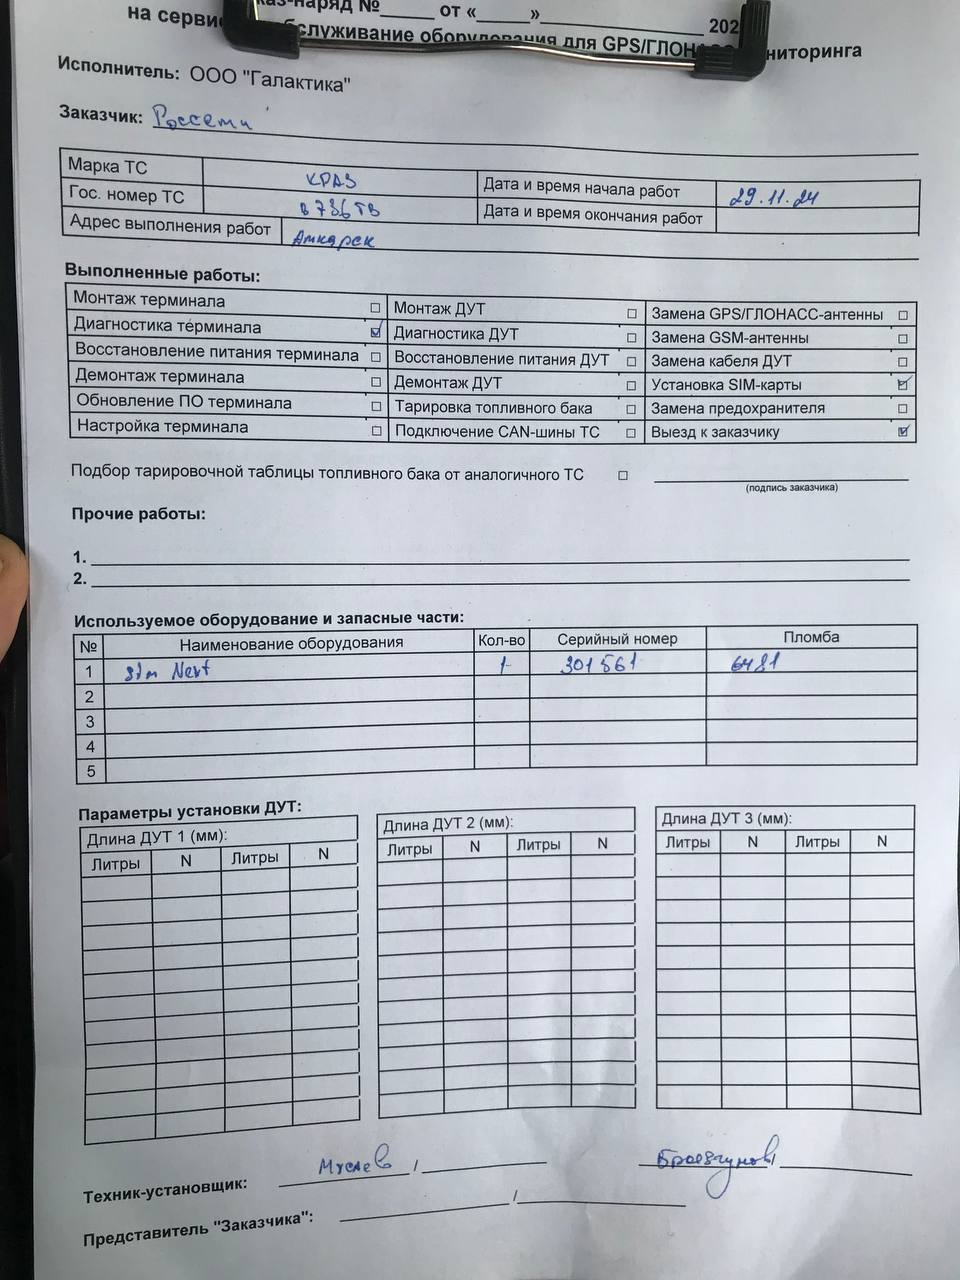 аз-наряд №_____ от «_____»_______________ 202
на серви служивание оборудования для GPS/ГЛОНАСС ниторинга
Исполнитель: ООО "Галактика"
Заказчик: Россети
Марка ТС КРАЗ Дата и время начала работ 29.11.24
Гос. номер ТС в 786 ТВ Дата и время окончания работ
Адрес выполнения работ Аткарск
Выполненные работы:
Монтаж терминала ☐ Монтаж ДУТ ☐ Замена GPS/ГЛОНАСС-антенны ☐
Диагностика терминала ☑ Диагностика ДУТ ☐ Замена GSM-антенны ☐
Восстановление питания терминала ☐ Восстановление питания ДУТ ☐ Замена кабеля ДУТ ☐
Демонтаж терминала ☐ Демонтаж ДУТ ☐ Установка SIM-карты ☑
Обновление ПО терминала ☐ Тарировка топливного бака ☐ Замена предохранителя ☐
Настройка терминала ☐ Подключение CAN-шины ТС ☐ Выезд к заказчику ☑
Подбор тарировочной таблицы топливного бака от аналогичного ТС ☐
(подпись заказчика)
Прочие работы:
1.
2.
Используемое оборудование и запасные части:
№ Наименование оборудования Кол-во Серийный номер Пломба
1 Sim Next 1 301561 6481
2
3
4
5
Параметры установки ДУТ:
Длина ДУТ 1 (мм): Длина ДУТ 2 (мм): Длина ДУТ 3 (мм):
Литры N Литры N Литры N Литры N Литры N Литры N
Техник-установщик: Мусаев /
Представитель "Заказчика": /